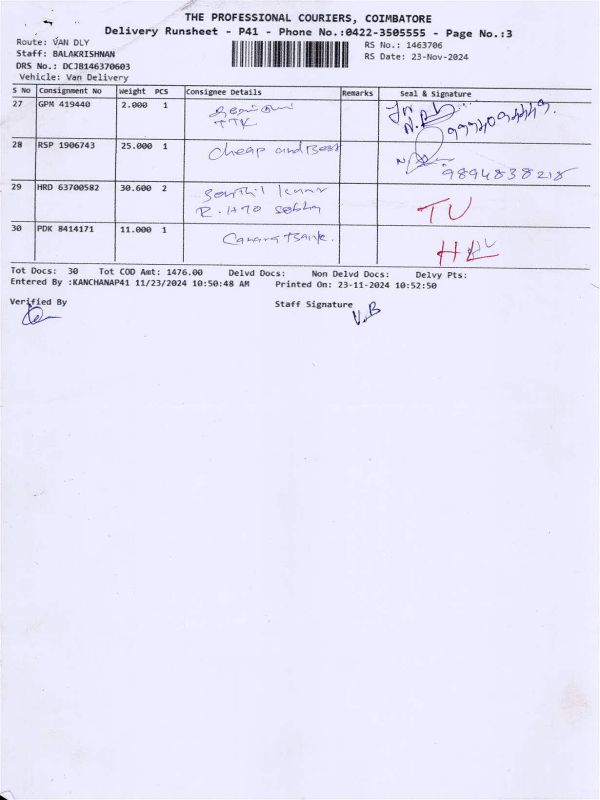 THE PROFESSIONAL COURIERS, COIMBATORE
Delivery Runsheet - P41 - Phone No.:0422-3505555 - Page No.:3
Route: VAN DLY
RS No.: 1463706
Staff: BALAKRISHNAN
RS Date: 23-Nov-2024
DRS No.: DCJB146370603
Vehicle: Van Delivery
S No Consignment No Weight PCS Consignee Details Remarks Seal & Signature
27 GPM 419440 2.000 1
TTK
28 RSP 1906743 25.000 1 Cheap and Best
9894838218
29 HRD 63700582 30.600 2 Senthil kumar
TU
30 PDK 8414171 11.000 1 Canara Bank.
HL
Tot Docs: 30 Tot COD Amt: 1476.00 Delvd Docs: Non Delvd Docs: Delvy Pts:
Entered By :KANCHANAP41 11/23/2024 10:50:48 AM Printed On: 23-11-2024 10:52:50
Verified By Staff Signature
V.B